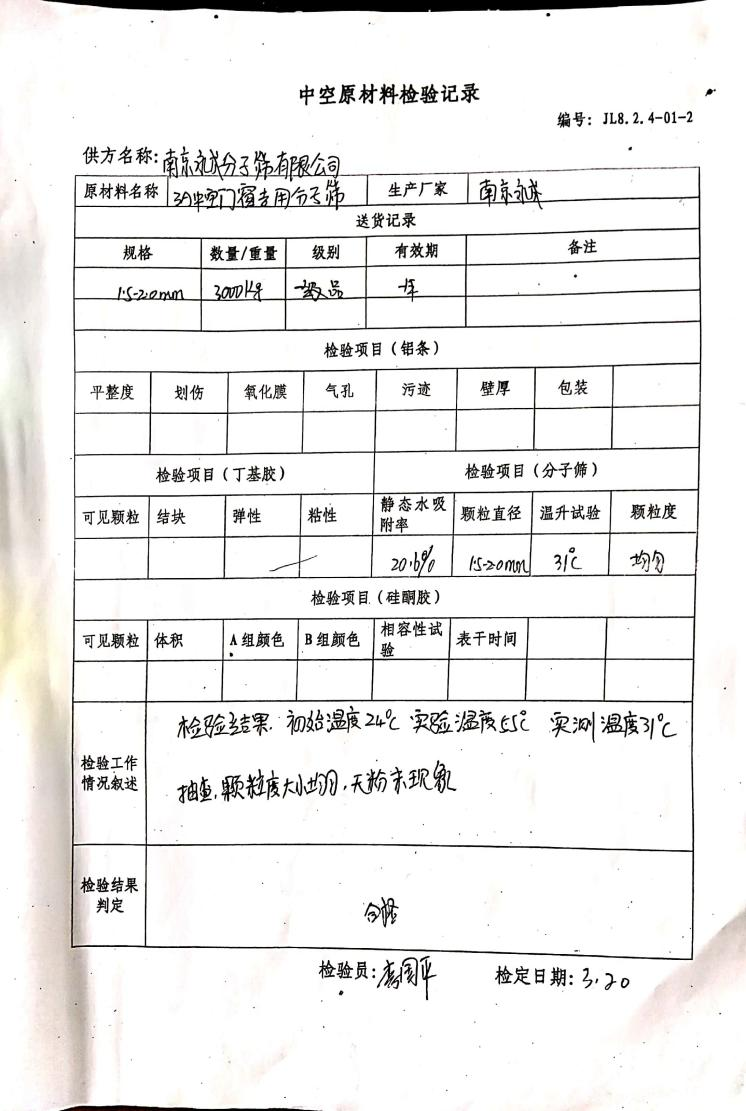 中空原材料检验记录
编号：JL8.2.4-01-2
供方名称：南京永成分子筛有限公司
原材料名称 3A中空门窗专用分子筛 生产厂家 南京永成
送货记录
规格 数量/重量 级别 有效期 备注
1.5-2.0mm 3000kg 一级品 一年
检验项目（铝条）
平整度 划伤 氧化膜 气孔 污迹 壁厚 包装
检验项目（丁基胶） 检验项目（分子筛）
可见颗粒 结块 弹性 粘性 静态水吸附率 颗粒直径 温升试验 颗粒度
20.6% 1.5-2.0mm 31℃ 均匀
检验项目（硅酮胶）
可见颗粒 体积 A组颜色 B组颜色 相容性试验 表干时间
检验工作情况叙述
检验结果：初始温度24℃ 实验温度55℃ 实测温度31℃
抽查，颗粒度大小均匀，无粉末现象
检验结果判定
合格
检验员：国平 检定日期：3.20